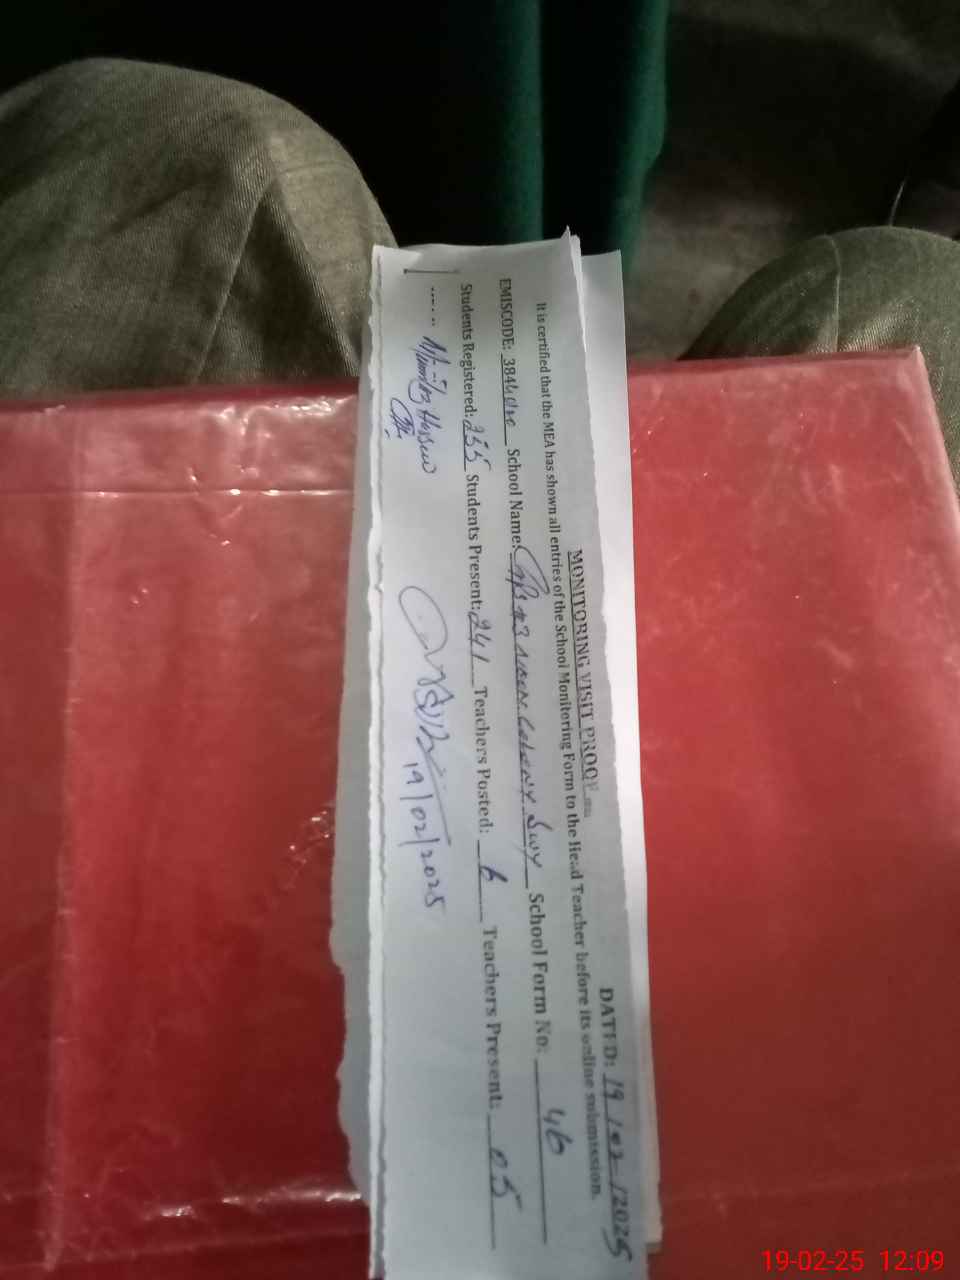 MONITORING VISIT PROOF
DATED: 19/02/2025
It is certified that the MEA has shown all entries of the School Monitoring Form to the Head Teacher before its online submission.
EMISCODE: School Name: GPS #3 NOON COLONY School Form No: 46
Students Registered: 255 Students Present: 241 Teachers Posted: 6 Teachers Present: 05
19/02/2025
19-02-25 12:09